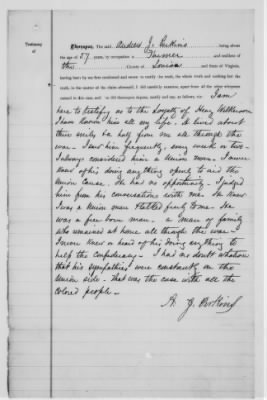 Testimony
of
Thereupon, The said Anders J. Perkins being about
the age of 57 years, by occupation a Farmer and resident of
this County of Louisa and State of Virginia,
having been by me first cautioned and sworn to testify the truth, the whole truth and nothing but the
truth, in the matter of the claim aforesaid, I did carefully examine, apart from all the other witnesses
named in this case, and he did thereupon depose, testify and say as follows, viz: I am
here to testify as to the loyalty of Henry Wilkerson
I have known him all my life. I lived about
three miles & a half from him all through the
war - I saw him frequently, every week or two -
I always considered him a Union man. I never
knew of his doing anything openly to aid the
Union cause. He had no opportunity. I judged
him from his conversations with me. He knew
I was a Union man & talked freely to me. He
was a free born man. a man of family
who remained at home all through the war -
I never knew or heard of his doing anything to
help the confederacy - I had no doubt
that his sympathies were constantly on the
Union side - that was the case with all the
colored people -
A. J. Perkins